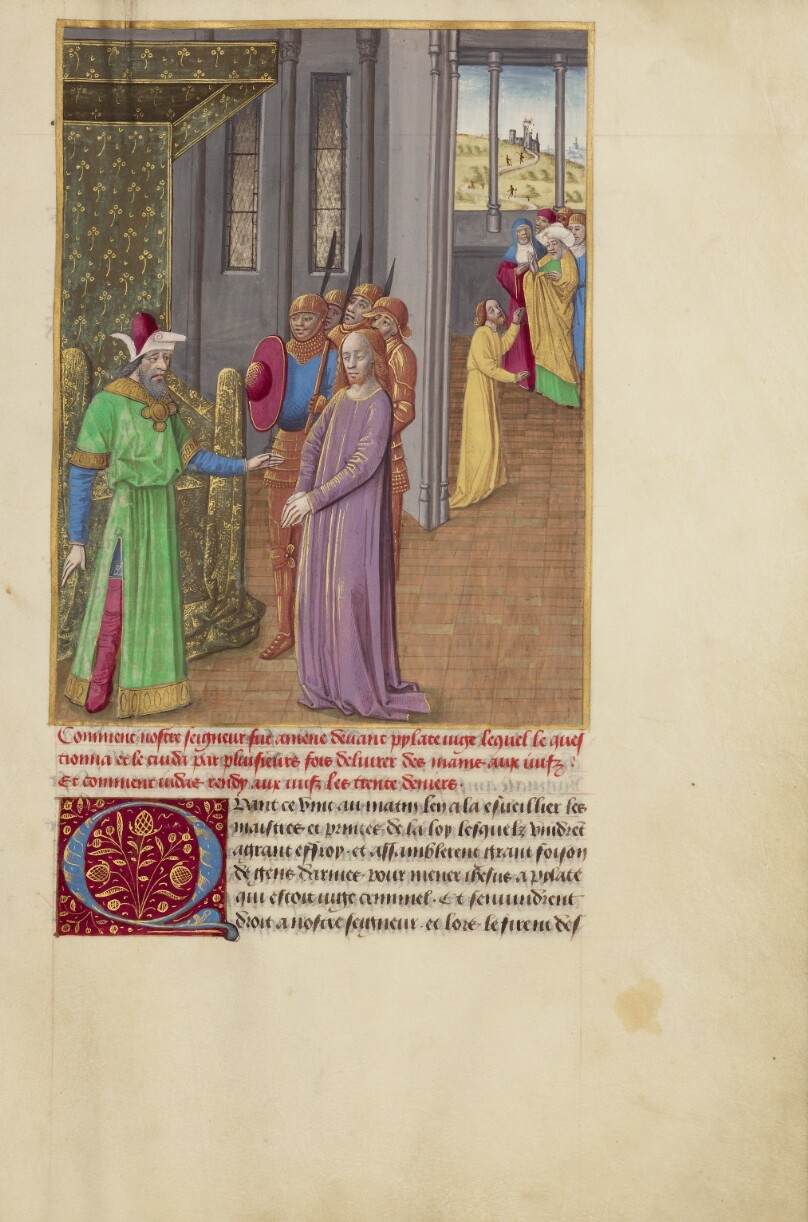 Comment nostre seigneur fut amene devant pylate iuge lequel le ques
tionna et le cuida par plusieurs fois delivrer des mains aux iuifz .
Et comment iudas rendy aux iuifz les trente deniers .
Quant ce vint au matin len ala esveillier les
maistres et princes de la loy lesquelz vindrent
a grant effroy . et assamblerent grant foison
de gens darmes pour mener ihesus a pylate
qui estoit iuge criminel . Et sen vindrent
droit a nostre seigneur . et lors le firent des